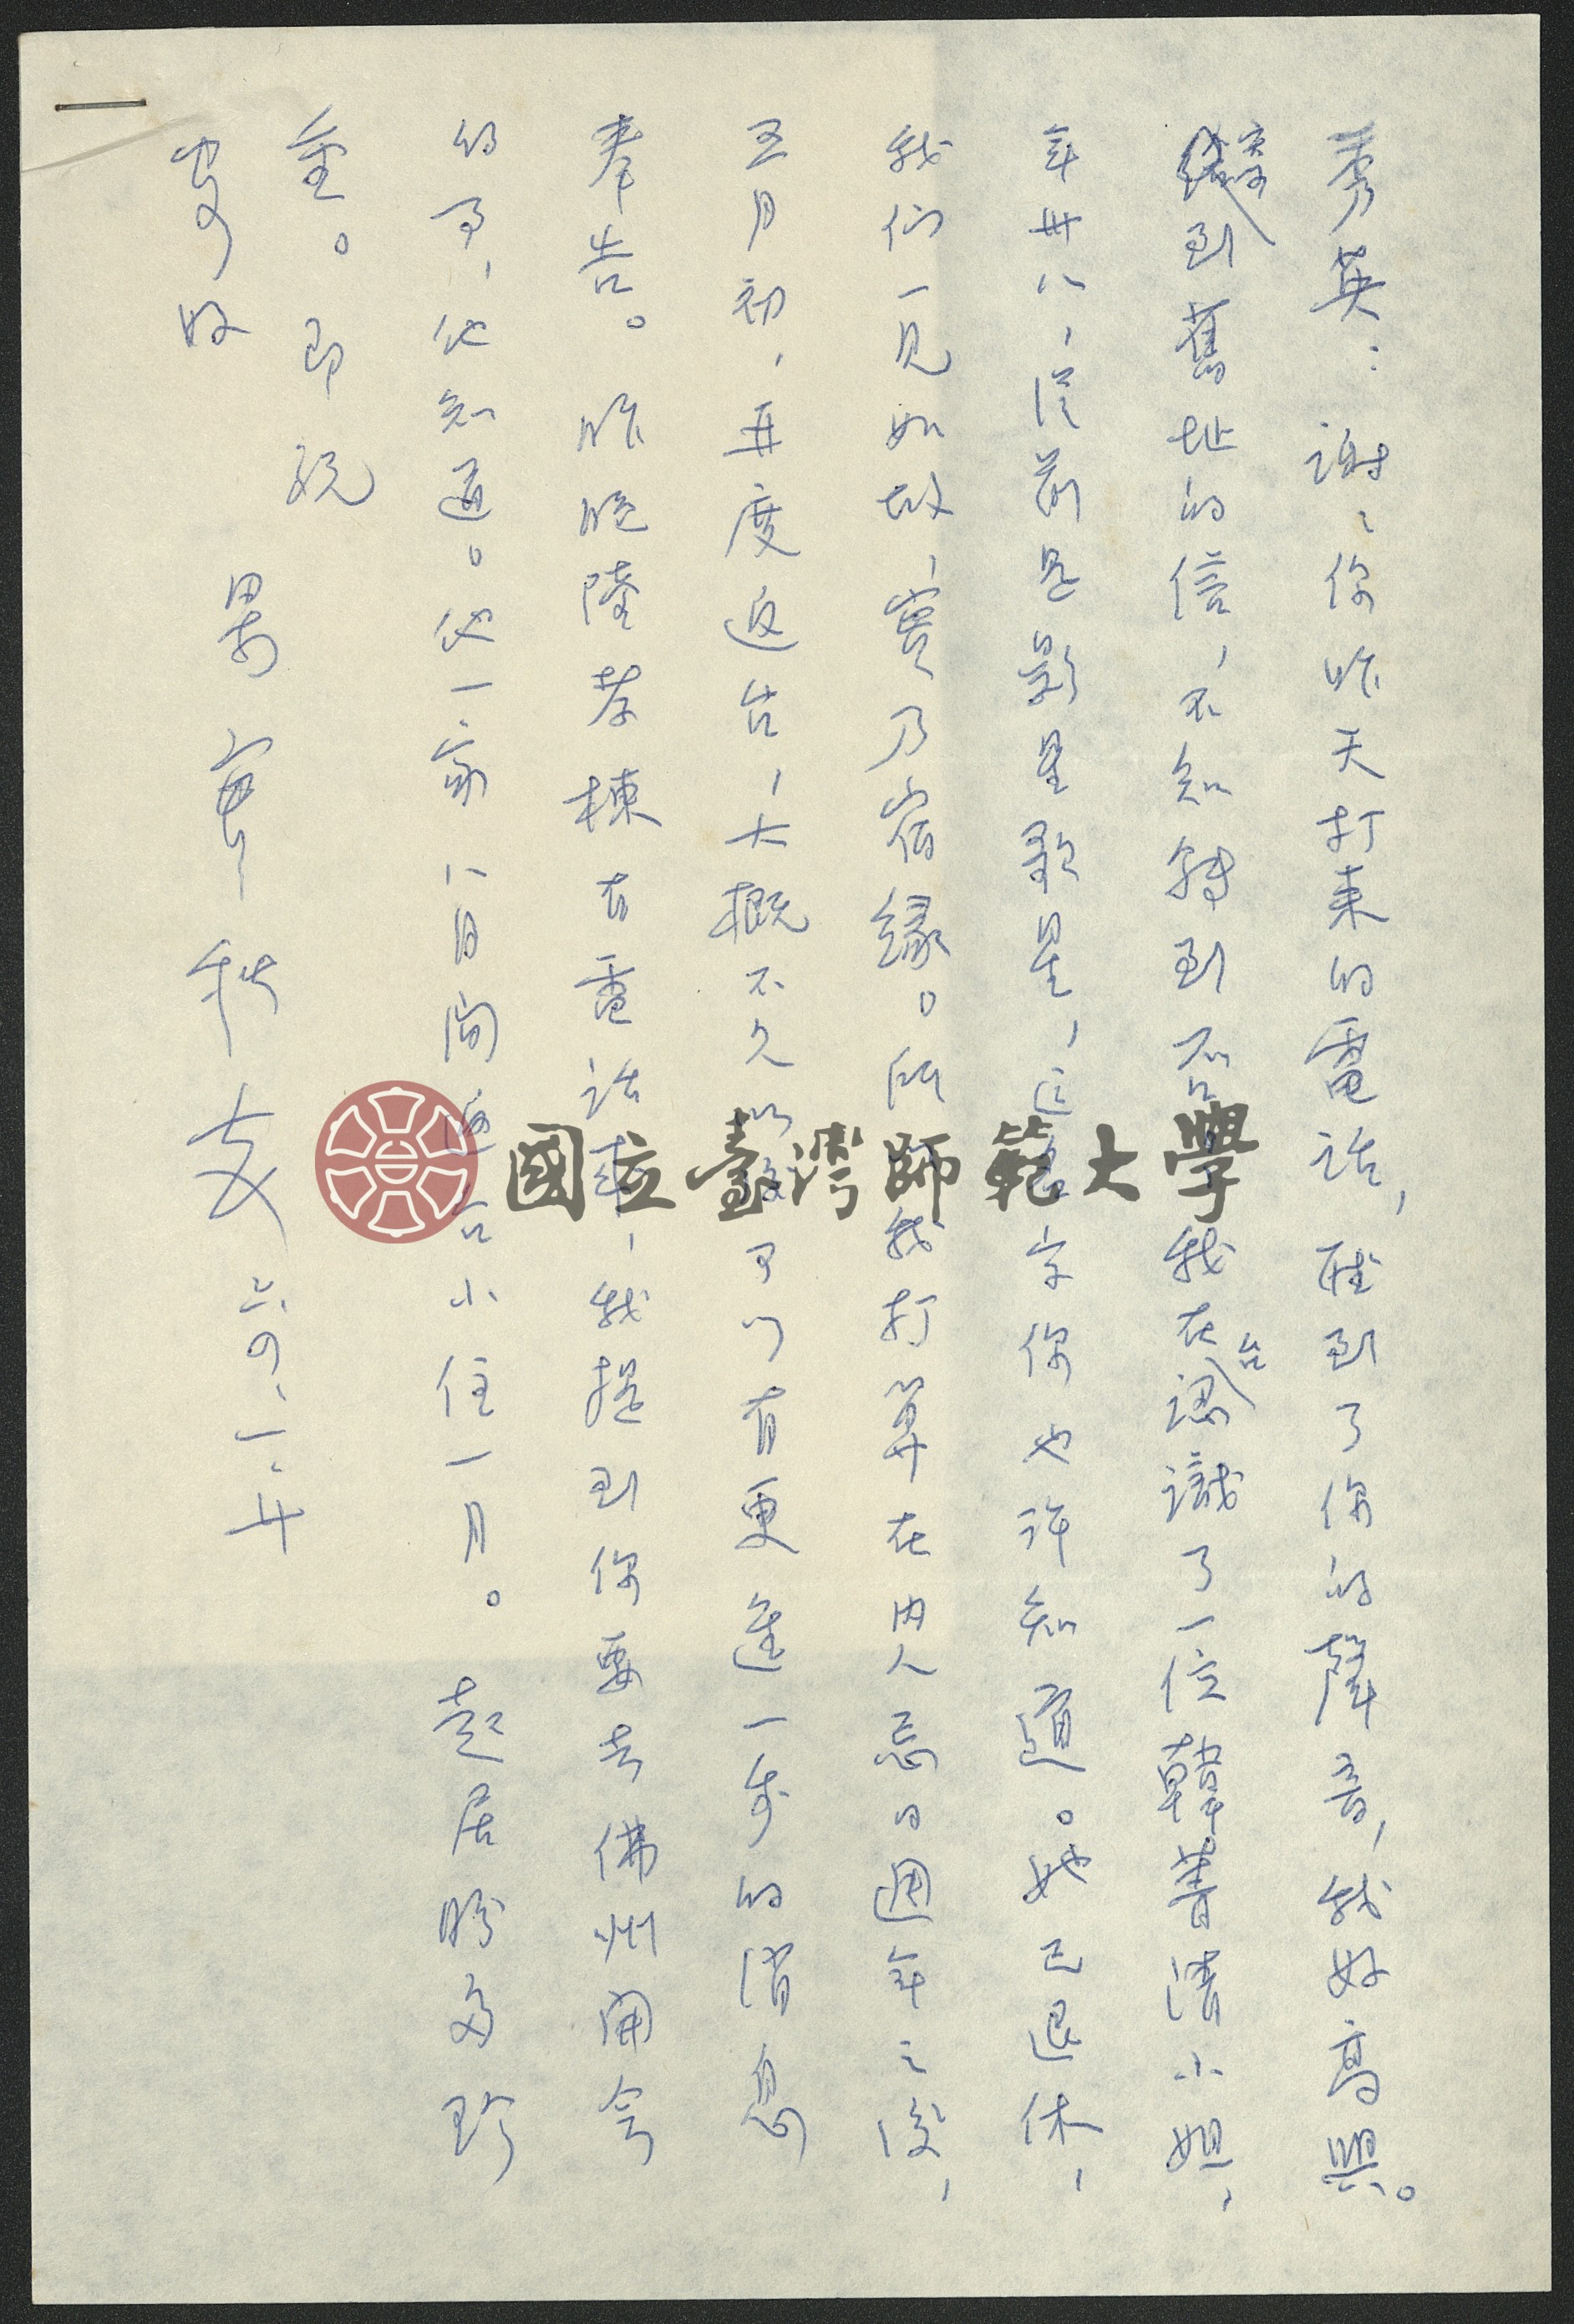 秀英：謝謝你昨天打來的電話，聽到了你的聲音，我好高興。
寄到舊址的信，不知轉到否？我在台認識了一位韓菁清小姐，
年卅八，從前是影星歌星，這名字你也許知道。她已退休，
我們一見如故，實乃宿緣。所以我打算在兩人忌日週年之後，
五月初，再度返台，大概不久以後可以有更進一步的消息
奉告。昨晚陸孝棟去電話來，我提到你要去佛州開會
的事，他知道。他一家六日間返台小住一月。起居眠食珍
重。即祝
安好
梁實秋
六四、一、廿
國立臺灣師範大學